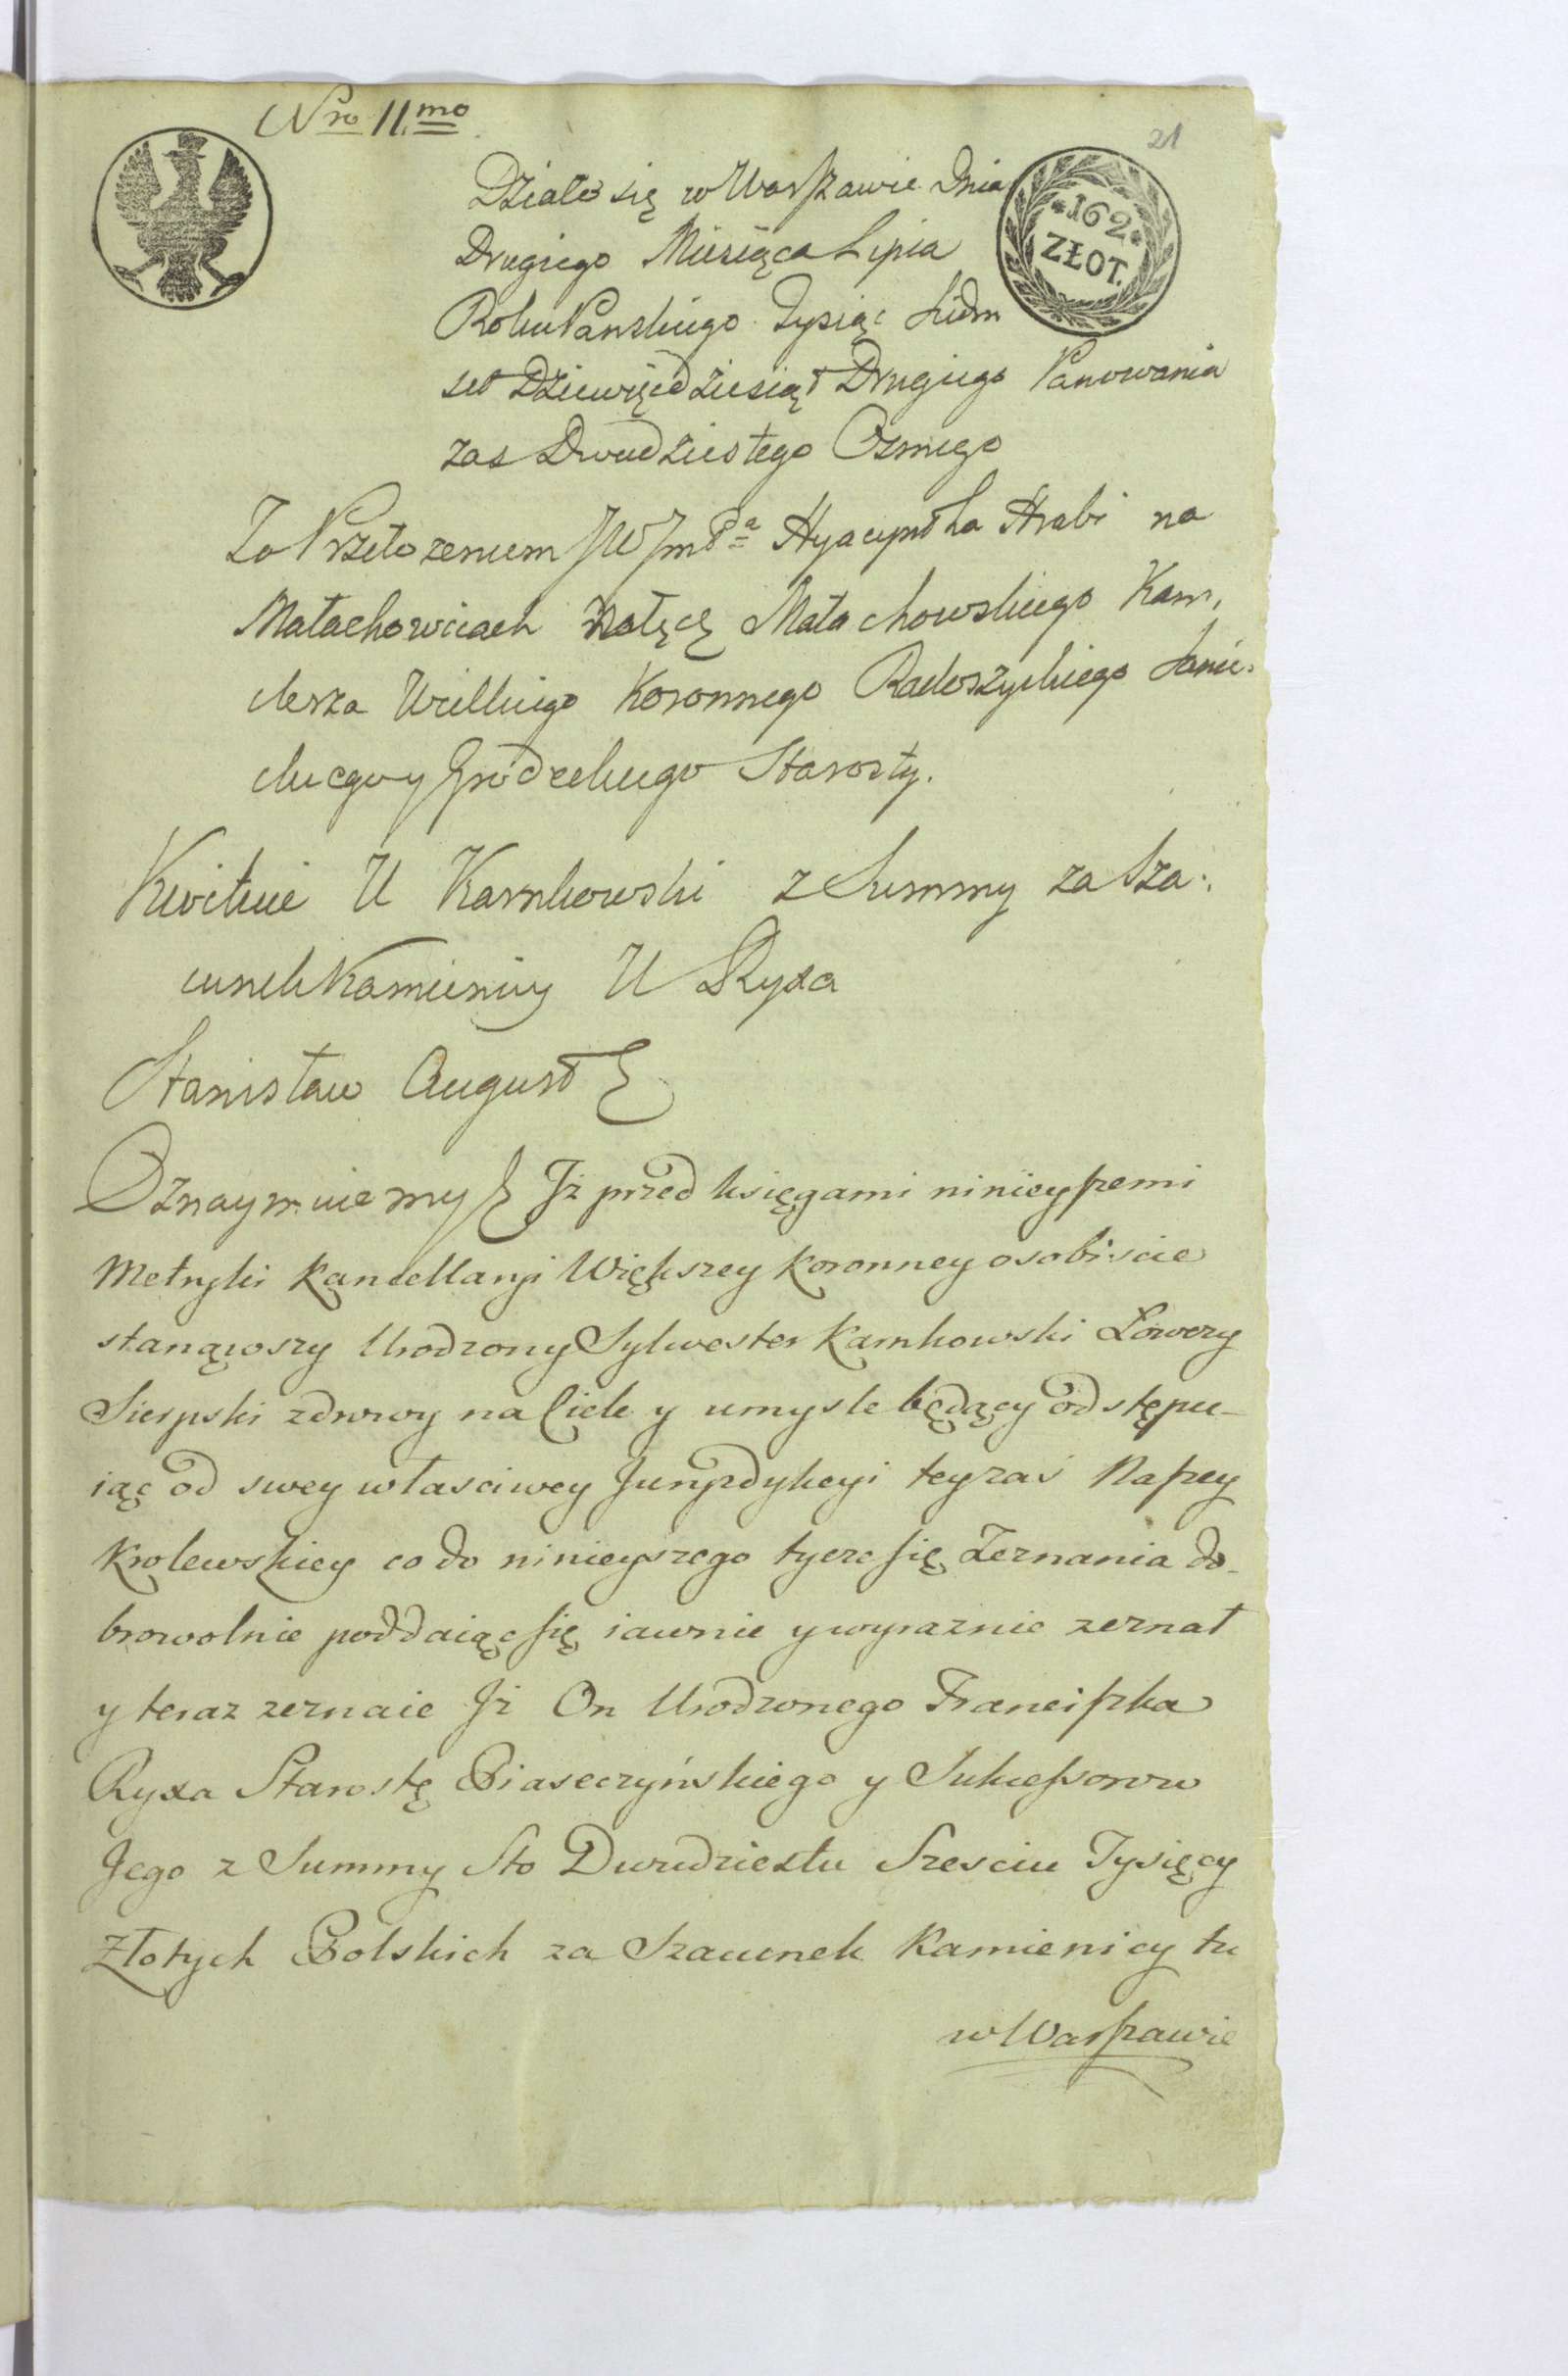 Nro 11.mo
21
*162*
ZŁOT.
Działo się w Warszawie Dnia
Drugiego Miesiąca Lipia
Roku Pańskiego Tysiąc Siedm
set Dziewięcdziesiąt Drugiego Panowania
zas Dwudziestego Osmego
Za Przełożeniem JW Jmć Pa Hyacyntha Hrabi na
Małachowicach Nałęcz Małachowskiego Kan,
clerza Wielkiego Koronnego Radoszyckiego Sani-
ckiego y Grodeckiego Starosty.
Kwituie U Karnkowski z Summy za Sza-
cunek Kamienicy U Ryxa
Stanisław August
Oznaymuiemy Jż przed księgami ninieyszemi
Metryki Kancellaryi Większey Koronney osobiscie
stanąwszy Urodzony Sylwester Karnkowski Łowczy
Sierpski zdrowy na Ciele y umysle będący odstępu-
iąc od swey własciwey Juryzdykcyi teyzaś Naszey
Krolewskiey co do ninieyszego tycze się Zeznania do-
browolnie poddaiąc się iawnie y wyraznie zeznał
y teraz zeznaie Jż On Urodzonego Franciszka
Ryxa Starostę Piaseczyńskiego y Sukcessorow
Jego z Summy Sto Dwudziestu Szesciu Tysięcy
Złotych Polskich za Szacunek Kamienicy tu
w Warszawie